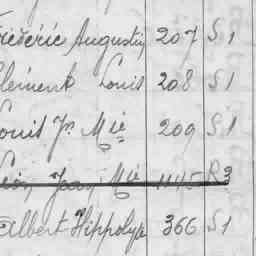 Frédéric Augustin 207 S 1
Clément Louis 208 S 1
Louis Jn Mie 209 S 1
Jean Mie 1145 R3
Albert Hippolyte 366 S 1